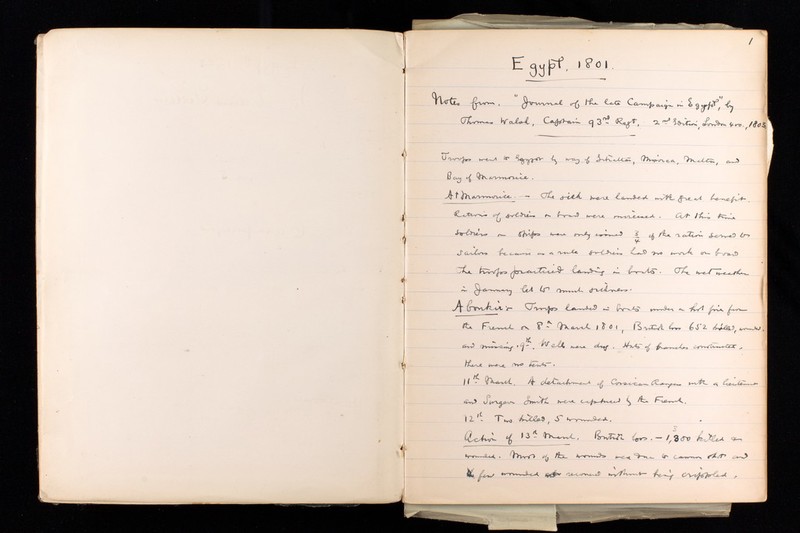 1
Egypt, 1801.
Notes from "Journal of the late Campaign in Egypt", by
Thomas Walsh, Captain 93rd Regt. 2nd Edition, London 4to., 1803
Troops went to Egypt by way of Gibraltar, Minorca, Malta, and
Bay of Marmorice.
At Marmorice. – The sick were landed with great benefit.
Rations of soldiers on board were increased. At this time
soldiers on ships were only issued 2/3 of the ration served to
sailors because as a rule soldiers had no work on board
The troops practised landing in boats. The wet weather
in January led to much sickness.
Aboukir Troops landed in boats under a hot fire from
the French on 8th March 1801, British loss 652 killed, wounded,
and missing. 9th. Wells were dug. Huts of branches constructed.
there were no tents.
11th March. A detachment of Corsican Rangers with a Lieutenant
and Surgeon Smith were captured by the French.
12th. Two killed, 5 wounded.
Action of 13th March. British loss. – 1,300 killed or
wounded. Most of the wounds were due to cannon shot and
few wounded recovered without being crippled.